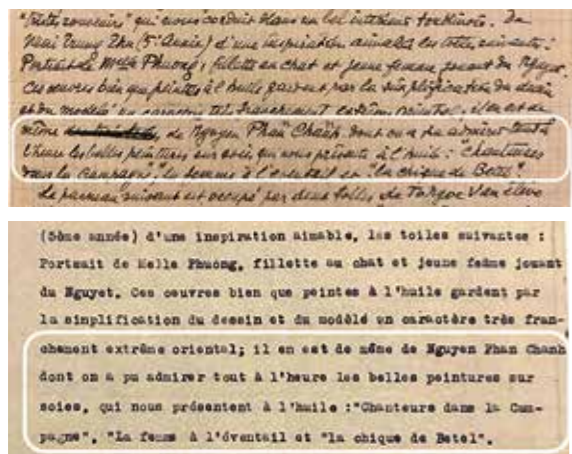 "Triste souvenirs" qui nous conduit dans un bel intérieur tonkinois. De
Mai Trung Thu (5e Année) d'une inspiration aimable les toiles suivantes :
Portrait de Melle Phuong, fillette au chat et jeune femme jouant du Nguyet.
Ces oeuvres bien que peintes à l'huile gardent par la simplification du dessin
et du modelé un caractère très franchement extrême oriental; il en est de
même de Nguyen Phan Chanh dont on a du admirer tout à
l'heure les belles peintures sur soies qui nous présente à l'huile : "chanteuses
dans la Campagne", "la femme à l'éventail et "la chique de Betel".
Le panneau suivant est occupé par deux toiles de To Ngoc Van élève
(5ème année) d'une inspiration aimable, les toiles suivantes :
Portrait de Melle Phuong, fillette au chat et jeune femme jouant
du Nguyet. Ces oeuvres bien que peintes à l'huile gardent par
la simplification du dessin et du modelé un caractère très fran-
chement extrême oriental; il en est de même de Nguyen Phan Chanh
dont on a pu admirer tout à l'heure les belles peintures sur
soies, qui nous présentent à l'huile :"Chanteurs dans la Cam-
pagne", "La femme à l'éventail et "la chique de Betel".